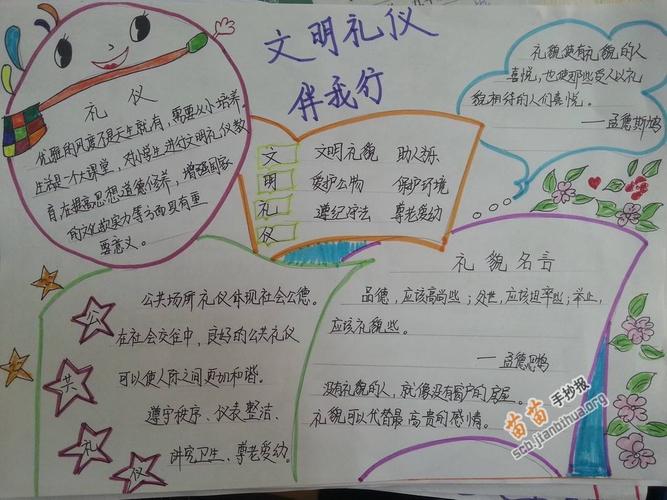 文明礼仪
伴我行
礼仪
优雅的风度不是天生就有，需要从小培养。
生活是一个大课堂，对小学生进行文明礼仪教
育在提高思想道德修养，增强国家
的文化软实力等方面具有重
要意义。
文 文明礼貌 助人为乐
明 爱护公物 保护环境
礼 遵纪守法 尊老爱幼
仪
礼貌使有礼貌的人
喜悦，也使那些受人以礼
貌相待的人们喜悦。
——孟德斯鸠
公共礼仪
公共场所礼仪体现社会公德。
在社会交往中，良好的公共礼仪
可以使人际之间更加和谐。
遵守秩序、仪表整洁、
讲究卫生、尊老爱幼。
礼貌名言
品德，应该高尚些；处世，应该坦率些；举止，
应该礼貌些。
——孟德思鸠
没有礼貌的人，就像没有窗户的房屋。
礼貌可以代替最高贵的感情。
苗苗手抄报
scb.jianbihua.org